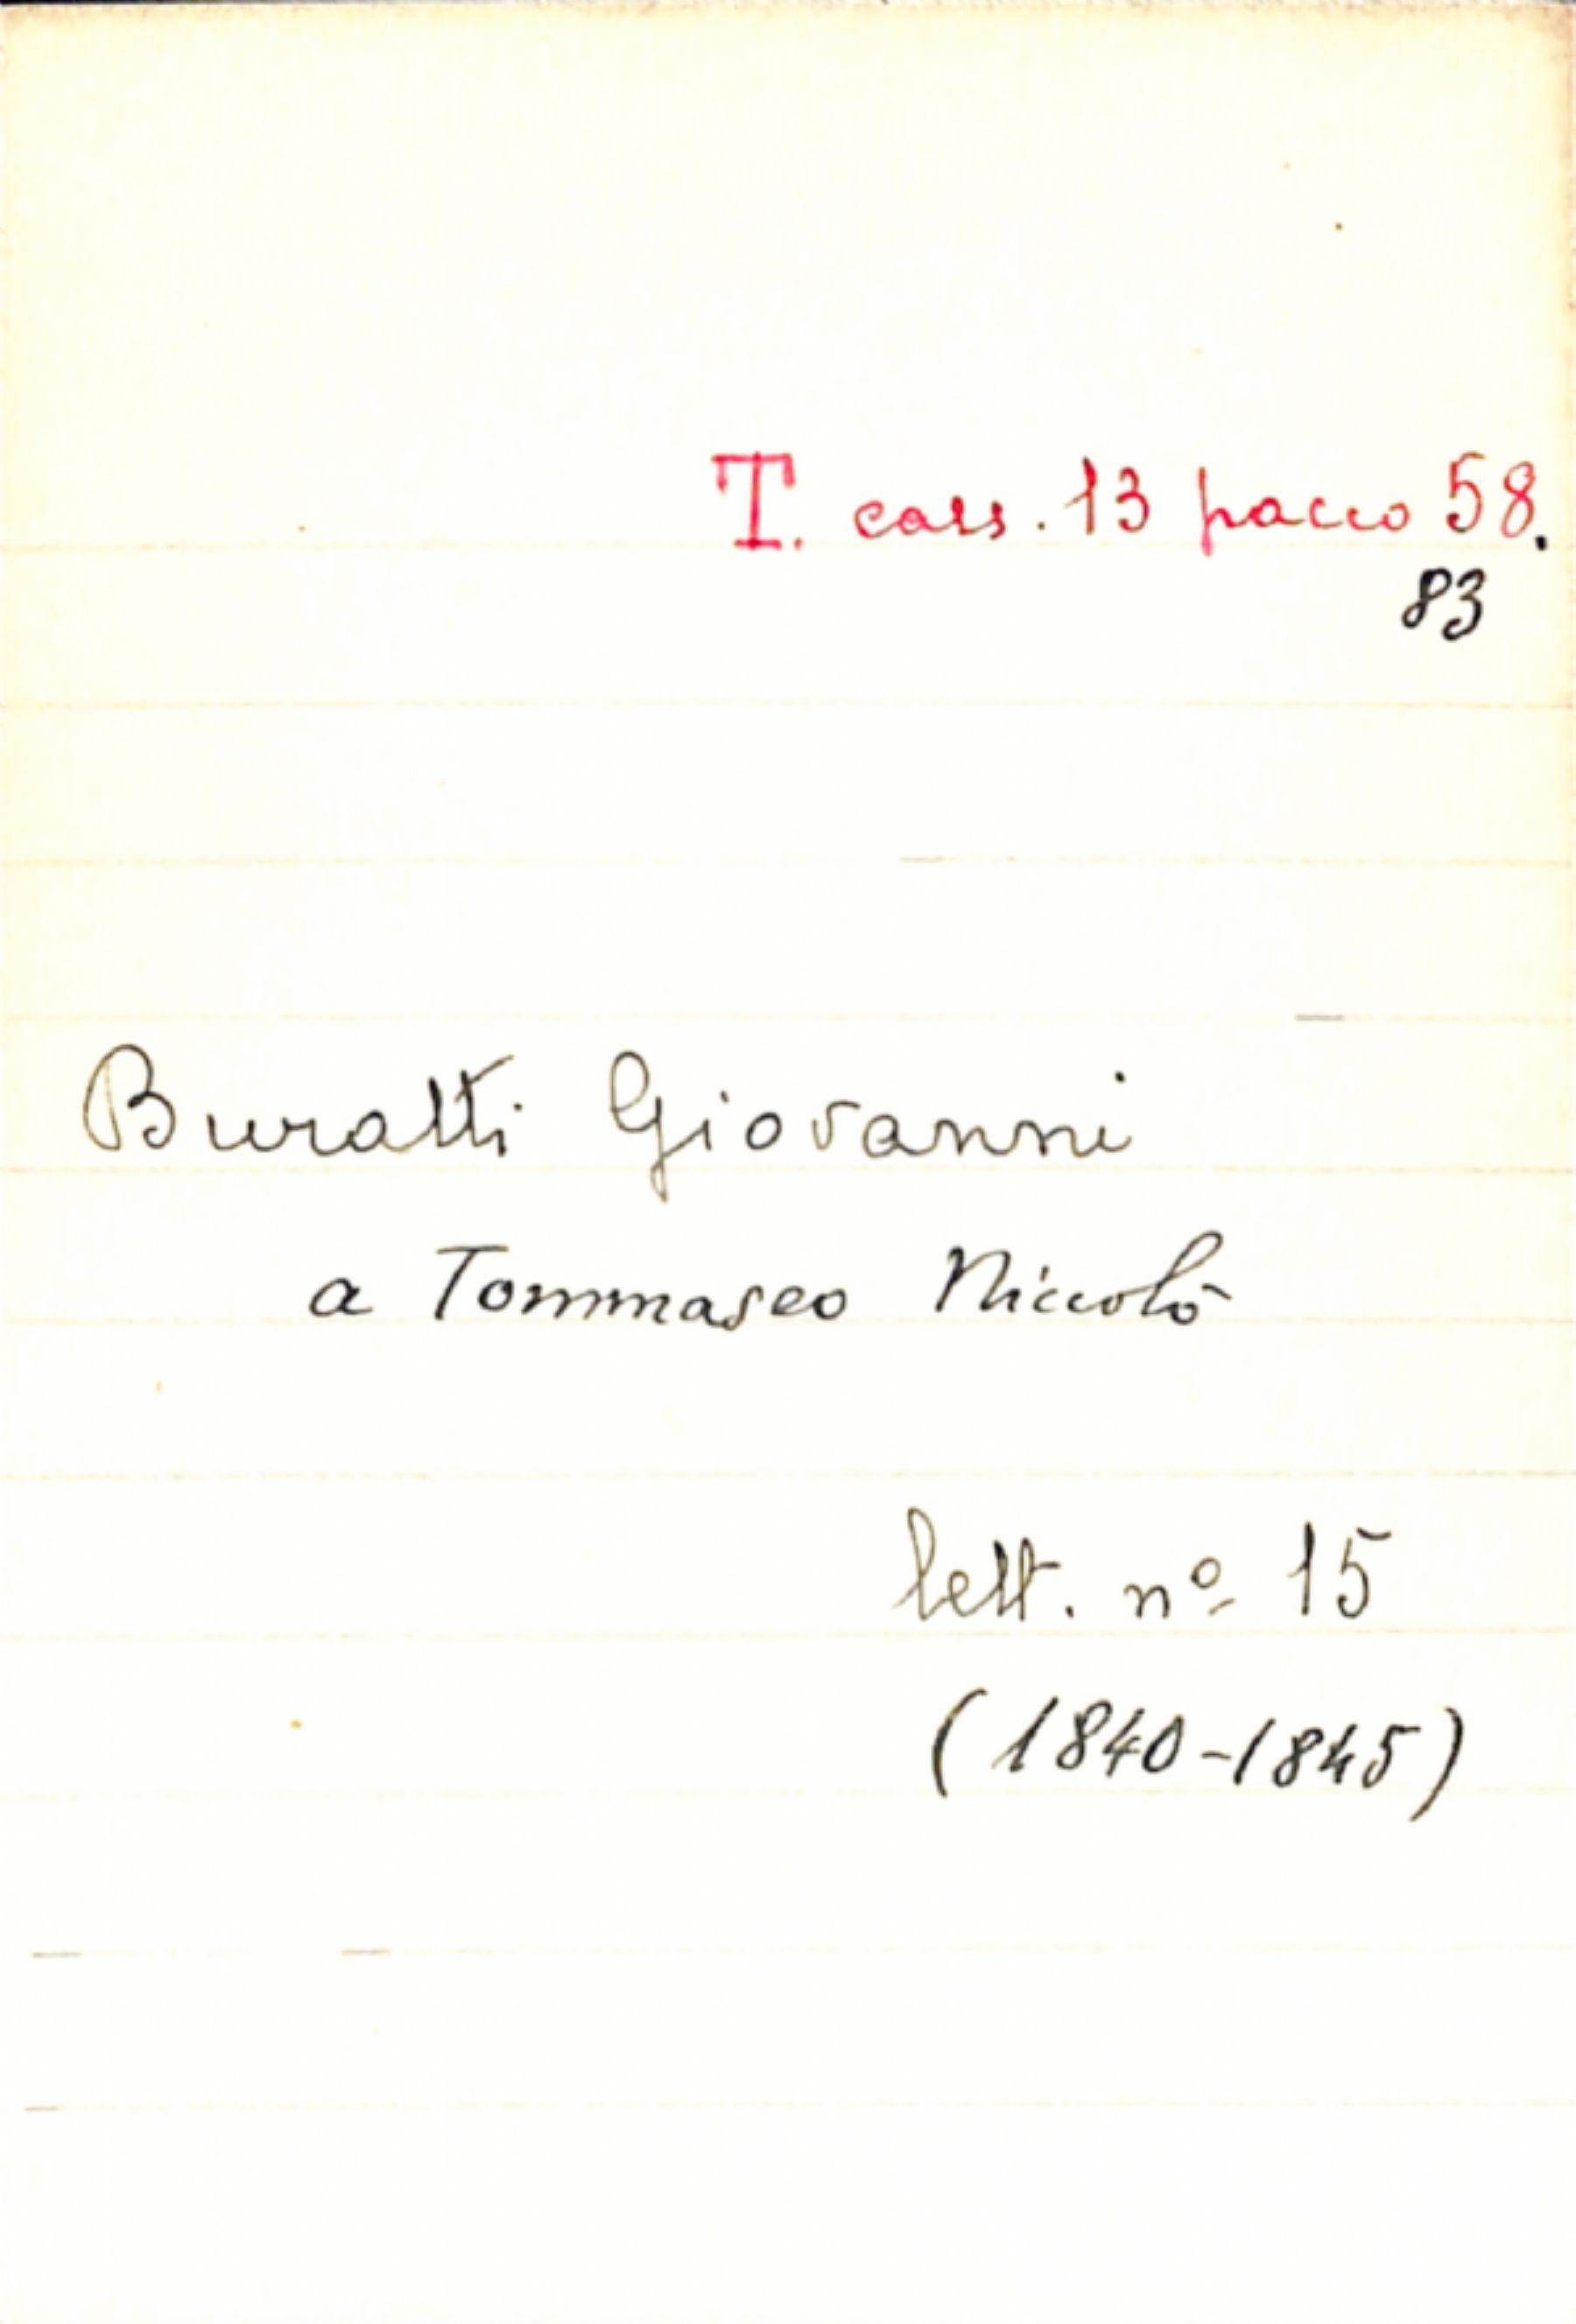 T. cass. 13 pacco 58.
83
Buratti Giovanni
a Tommaseo Niccolò
lett. nº 15
(1840-1845)